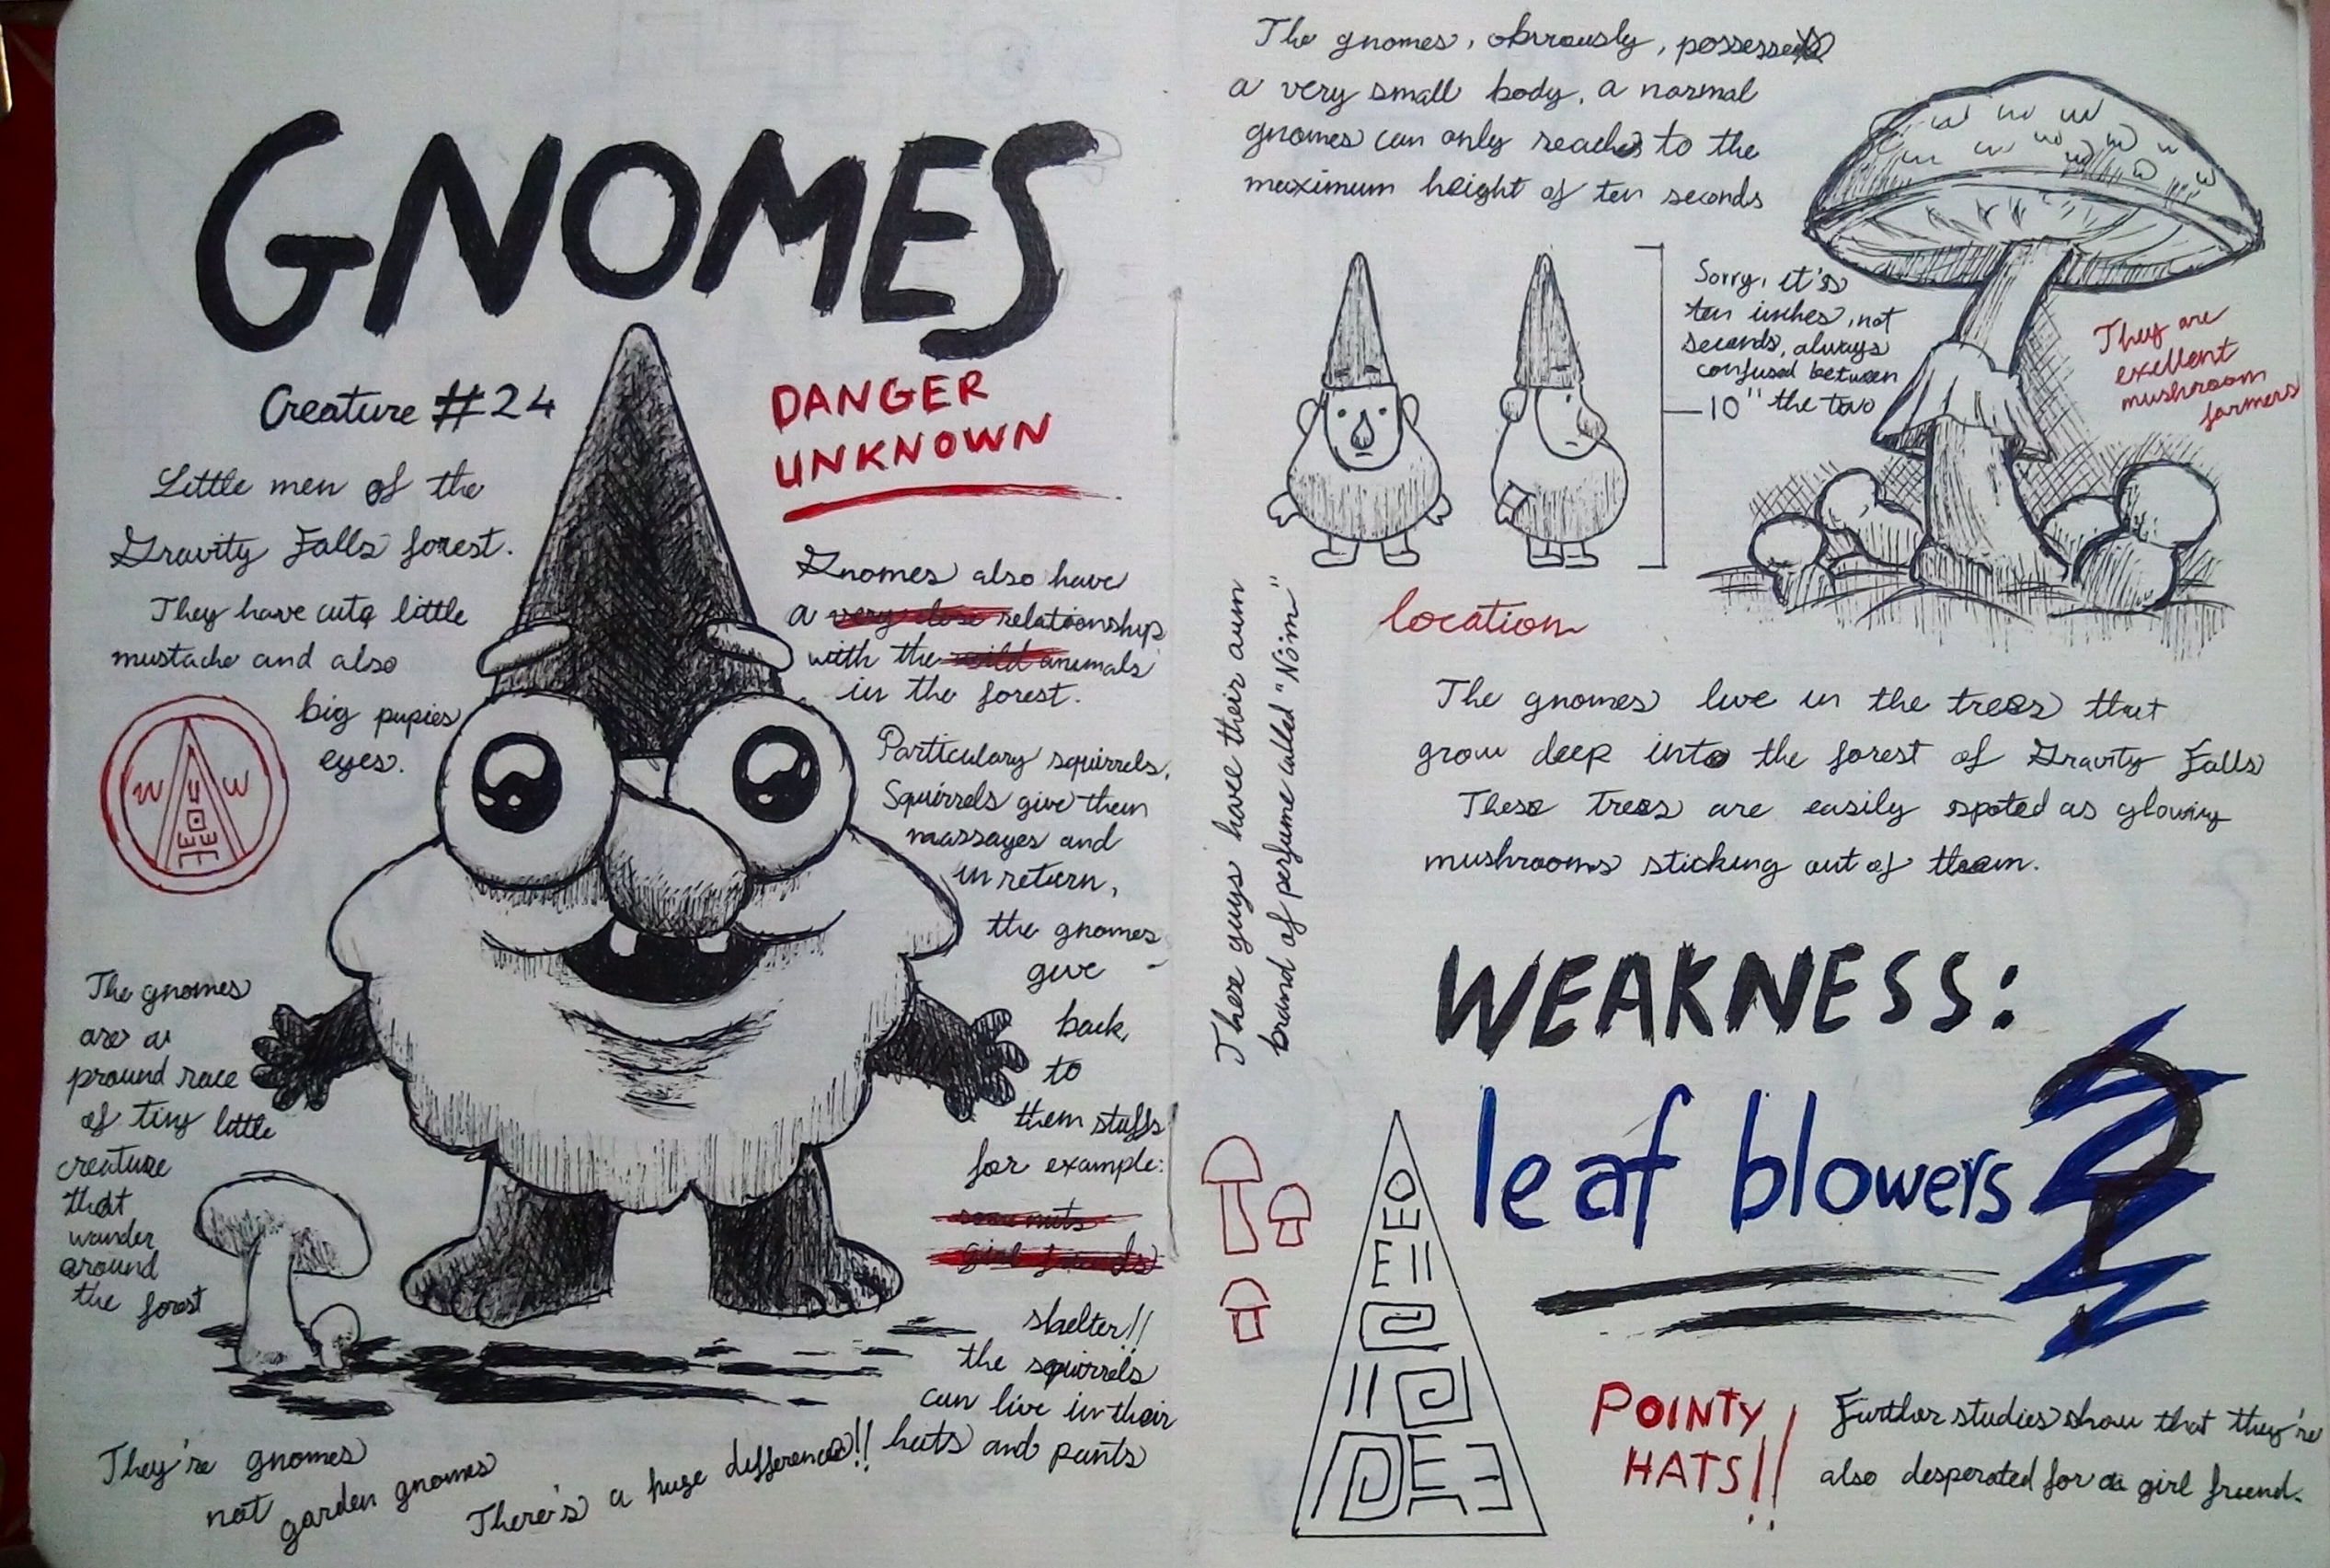 GNOMES
Creature #24
DANGER
UNKNOWN
Little men of the
Gravity Falls forest.
They have cute little
mustache and also
big pupies
eyes.
W W
Gnomes also have
a very close relationship
with the wild animals
in the forest.
Particulary squirrels.
Squirrels give them
massages and
in return,
the gnomes
give
back,
to
them stuffs
for example:
some nuts
girl friends
shelter!!
the squirrels
can live in their
hats and pants
The gnomes
are a
pround race
of tiny little
creature
that
wander
around
the forest
They're gnomes
not garden gnomes
There's a huge difference!!
The gnomes, obviously, possesses
a very small body, a normal
gnomes can only reaches to the
maximum height of ten seconds
Sorry, it's
ten inches, not
seconds, always
confused between
10" the two
They are
exellent
mushroom
farmers
location
These guys have their own
brand of perfume called "Nöm"
The gnomes live in the trees that
grow deep into the forest of Gravity Falls
These trees are easily spoted as glowing
mushrooms sticking out of them.
WEAKNESS:
leaf blowers ?
POINTY
HATS!!
Further studies show that they're
also desperated for a girl friend.